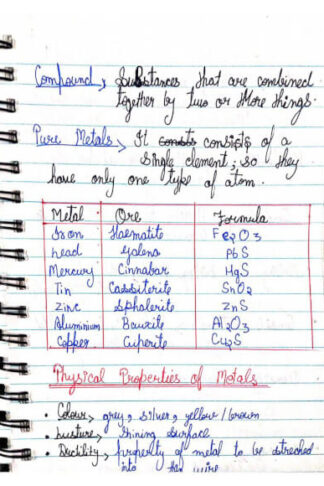 Compound, Substances that are combined
together by two or more things.
Pure Metals, It consists consists of a
single element; so they
have only one type of atom.
Metal Ore Formula
Iron Haematite Fe2O3
Lead Galena PbS
Mercury Cinnabar HgS
Tin Cassiterite SnO2
Zinc Sphalerite ZnS
Aluminium Bauxite Al2O3
Copper Cuperite Cu2S
Physical Properties of Metals
• Colour, grey, silver, yellow/brown
• Lusture, Shining surface
• Ductility, property of metal to be streched
into the wire